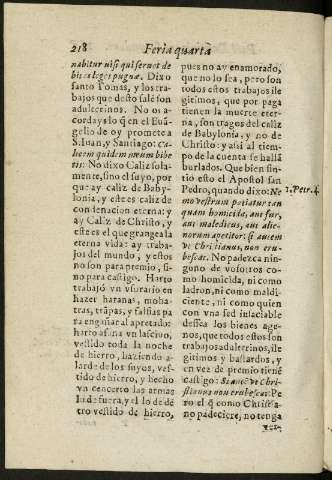 218 Feria quarta
nabitur nisi qui servet de
bite leges pugnæ. Dixo
santo Tomas, y los tra-
bajos que desto salé son
adulterinos. No os a-
cordays lo q̃ en el Euã-
gelio de oy promete a
S. Iuan, y Santiago: Ca-
licem quidem meum bibe
tis: No dixo Caliz sola-
mente, sino el suyo, por
que ay caliz de Baby-
lonia, y este es caliz de
condenacion eterna: y
ay Caliz de Christo, y
este es el que grangea la
eterna vida: ay traba-
jos del mundo, y estos
no son para premio, si-
no para castigo. Harto
trabajò vn vsurario en
hazer haranas, moha-
tras, trãpas, y falsias pa
ra engañar al apretado:
harto afana vn lascivo,
vestido toda la noche
de hierro, haziendo a-
larde de los suyos, ves-
tido de hierro, y hecho
vn concerto las armas
lo de fuera, y el lo de de
tro vestido de hierro,
pues no ay enamorado,
que no lo sea, pero son
todos estos trabajos ile
gitimos, que por paga
tienen la muerte eter-
na, son tragos del caliz
de Babylonia, y no de
Christo: y assi al tiem-
po de la cuenta se hallã
burlados. Que bien sin-
tiò esto el Apostol san
Pedro, quando dixo: Ne
mo vestrum patiatur tan
quam homicida, aut fur,
aut maledicus, aut alie-
norum apetitor: si autem
vt Christianus, non eru-
bescat. No padezca nin-
guno de vosotros co-
mo homicida, ni como
ladron, ni como maldi-
ciente, ni como quien
con vna sed insaciable
dessea los bienes age-
nos, que todos estos son
trabajos adulterinos, ile
gitimos y bastardos, y
en vez de premio tiené
castigo: Si autẽ vt Chri-
stianus non erubescat: Pe
ro el q̃ como Christia-
no padeciere, no tenga
1. Petr. 4.